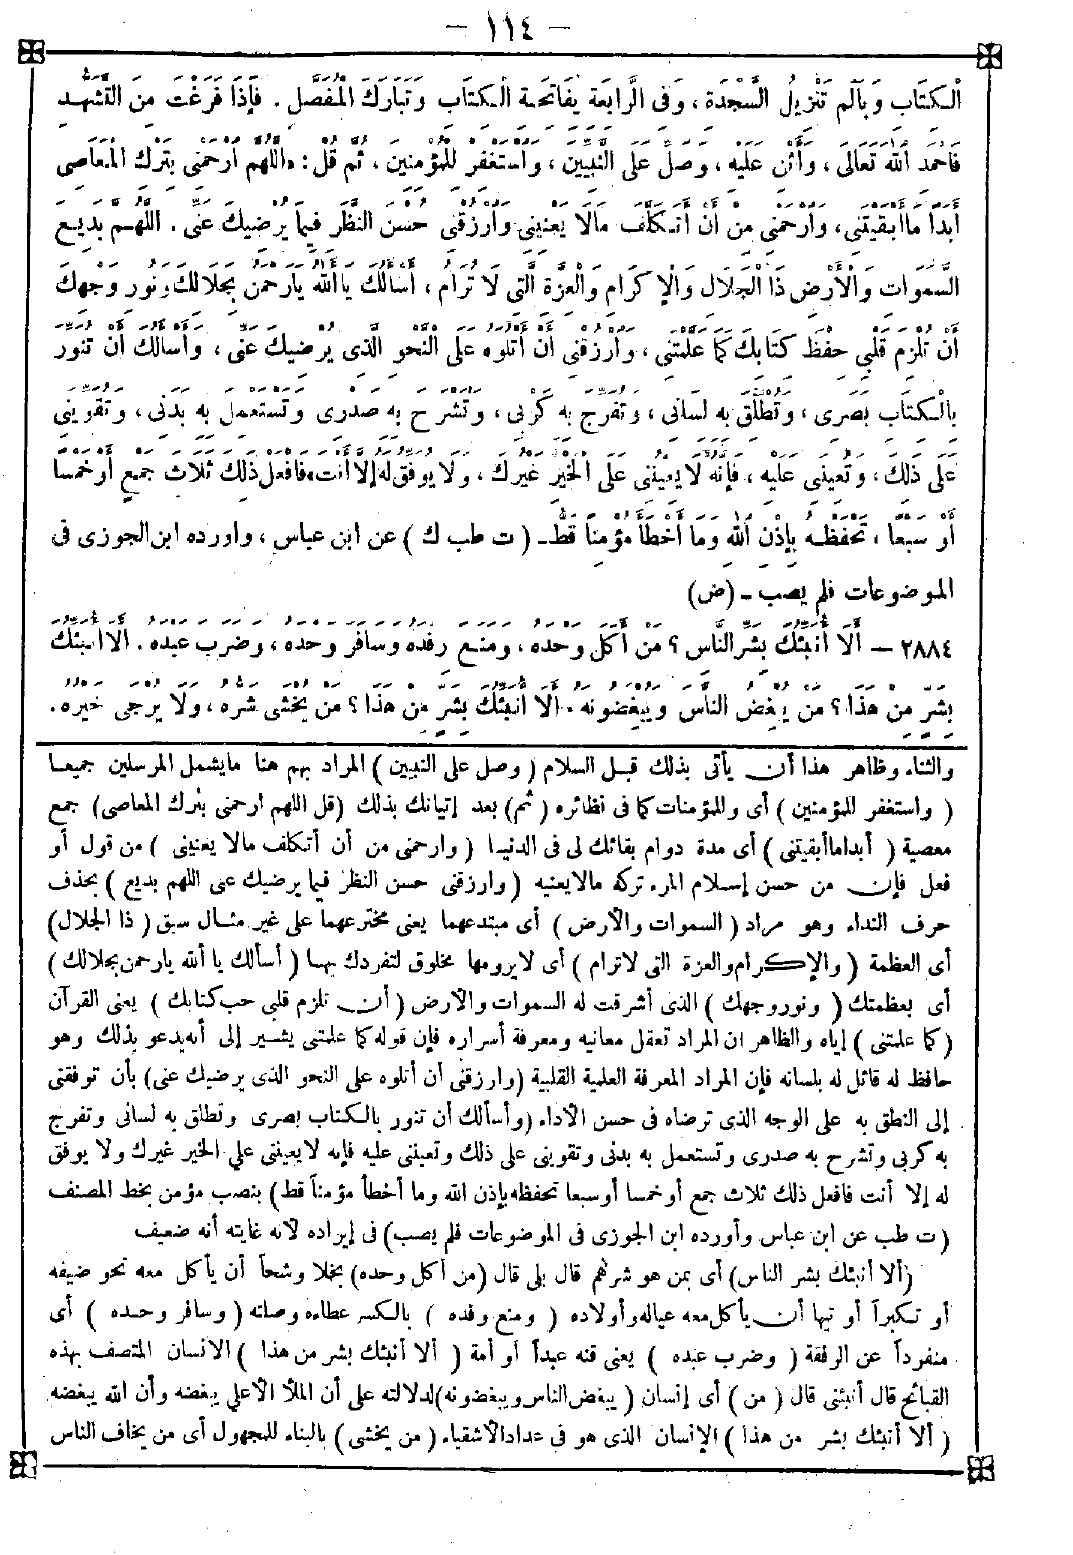 – ١١٤ –
الْكِتَابِ وَبِآلم تَنْزِيلُ السَّجْدَةِ، وَفِي الرَّابِعَةِ بِفَاتِحَةِ الْكِتَابِ وَتَبَارَكَ الْمُفَصَّلِ. فَإِذَا فَرَغْتَ مِنَ التَّشَهُّدِ
فَاحْمَدِ اللهَ تَعَالَى، وَأَثْنِ عَلَيْهِ، وَصَلِّ عَلَى النَّبِيِّينَ، وَاسْتَغْفِرْ لِلْمُؤْمِنِينَ، ثُمَّ قُلْ: «اللَّهُمَّ ارْحَمْنِي بِتَرْكِ الْمَعَاصِي
أَبَدًا مَا أَبْقَيْتَنِي، وَارْحَمْنِي مِنْ أَنْ أَتَكَلَّفَ مَالَا يَعْنِينِي وَارْزُقْنِي حُسْنَ النَّظَرِ فِيمَا يُرْضِيكَ عَنِّي. اللَّهُمَّ بَدِيعَ
السَّمَوَاتِ وَالْأَرْضِ ذَا الْجَلَالِ وَالْإِكْرَامِ وَالْعِزَّةِ الَّتِي لَا تُرَامُ، أَسْأَلُكَ يَا أَللهُ يَارَحْمَنُ بِجَلَالِكَ وَنُورِ وَجْهِكَ
أَنْ تُلْزِمَ قَلْبِي حِفْظَ كِتَابِكَ كَمَا عَلَّمْتَنِي، وَارْزُقْنِي أَنْ أَتْلُوَهُ عَلَى النَّحْوِ الَّذِي يُرْضِيكَ عَنِّي، وَأَسْأَلُكَ أَنْ تُنَوِّرَ
بِالْكِتَابِ بَصَرِي، وَتُطْلِقَ بِهِ لِسَانِي، وَتُفَرِّجَ بِهِ كَرْبِي، وَتَشْرَحَ بِهِ صَدْرِي وَتَسْتَعْمِلَ بِهِ بَدَنِي، وَتُقَوِّيَنِي
عَلَى ذَلِكَ، وَتُعِينَنِي عَلَيْهِ، فَإِنَّهُ لَا يُعِينُنِي عَلَى الْخَيْرِ غَيْرُكَ، وَلَا يُوَفِّقُ لَهُ إِلَّا أَنْتَ» فَافْعَلْ ذَلِكَ ثَلَاثَ جُمَعٍ أَوْ خَمْسًا
أَوْ سَبْعًا، تَحْفَظْهُ بِإِذْنِ اللهِ وَمَا أَخْطَأَ مُؤْمِنًا قَطُّ - (ت طب ك) عن ابن عباس، واورده ابن الجوزى فى
الموضوعات فلم يصب - (ض)
٢٨٨٤ – أَلَا أُنَبِّئُكَ بِشَرِّ النَّاسِ؟ مَنْ أَكَلَ وَحْدَهُ، وَمَنَعَ رِفْدَهُ وَسَافَرَ وَحْدَهُ، وَضَرَبَ عَبْدَهُ. أَلَا أُنَبِّئُكَ
بِشَرٍّ مِنْ هَذَا؟ مَنْ يُبْغِضُ النَّاسَ وَيُبْغِضُونَهُ. أَلَا أُنَبِّئُكَ بِشَرٍّ مِنْ هَذَا؟ مَنْ يُخْشَى شَرُّهُ، وَلَا يُرْجَى خَيْرُهُ.
والثناء وظاهر هذا أن يأتى بذلك قبل السلام (وصل على النبيين) المراد بهم هنا مايشمل المرسلين جميعا
(واستغفر للمؤمنين) أى وللمؤمنات كما فى نظائره (ثم) بعد إتيانك بذلك (قل اللهم ارحمنى بترك المعاصى) جمع
معصية (أبداماأبقيتنى) أى مدة دوام بقائك لى فى الدنيا (وارحمنى من أن أتكلف مالا يعنينى) من قول أو
فعل فإن من حسن إسلام المرء تركه مالايعنيه (وارزقنى حسن النظر فيما يرضيك عنى اللهم بديع) بحذف
حرف النداء وهو مراد (السموات والأرض) أى مبتدعهما يعنى مخترعهما على غير مثال سبق (ذا الجلال)
أى العظمة (والإكرام والعزة التى لاترام) أى لايرومها مخلوق لتفردك بها (أسألك يا ألله يارحمن بجلالك)
أى بعظمتك (ونور وجهك) الذى أشرقت له السموات والأرض (أن تلزم قلبى حب كتابك) يعنى القرآن
(كما علمتنى) إياه والظاهر ان المراد تعقل معانيه ومعرفة أسراره فإن قوله كما علمتنى يشير إلى أنه يدعو بذلك وهو
حافظ له قائل له بلسانه فإن المراد المعرفة العلمية القلبية (وارزقنى أن أتلوه على النحو الذى يرضيك عنى) بأن توفقنى
إلى النطق به على الوجه الذى ترضاه فى حسن الأداء (وأسألك أن تنور بالكتاب بصرى وتطلق به لسانى وتفرج
به كربى وتشرح به صدرى وتستعمل به بدنى وتقوينى على ذلك وتعيننى عليه فإنه لايعيننى على الخير غيرك ولا يوفق
له إلا أنت فافعل ذلك ثلاث جمع أوخمسا أوسبعا تحفظه بإذن الله وما أخطأ مؤمناً قط) بنصب مؤمن بخط المصنف
(ت طب عن ابن عباس وأورده ابن الجوزى فى الموضوعات فلم يصب) فى إيراده لأنه غايته أنه ضعيف
(ألا أنبئك بشر الناس) أى بمن هو شرهم قال بلى قال (من أكل وحده) بخلا وشحاً أن يأكل معه نحو ضيفه
أو تكبراً أو تيها أن يأكل معه عياله وأولاده (ومنع رفده) بالكسر عطاءه وصلته (وسافر وحده) أى
منفرداً عن الرفقة (وضرب عبده) يعنى قنه عبداً أو أمة (ألا أنبئك بشر من هذا) الانسان المتصف بهذه
القبائح قال أنبئنى قال (من) أى إنسان (يبغض الناس ويبغضونه) لدلالته على أن الملأ الأعلى يبغضه وأن الله يبغضه
(ألا أنبئك بشر من هذا) الإنسان الذى هو فى عداد الأشقياء (من يخشى) بالبناء للمجهول أى من يخاف الناس